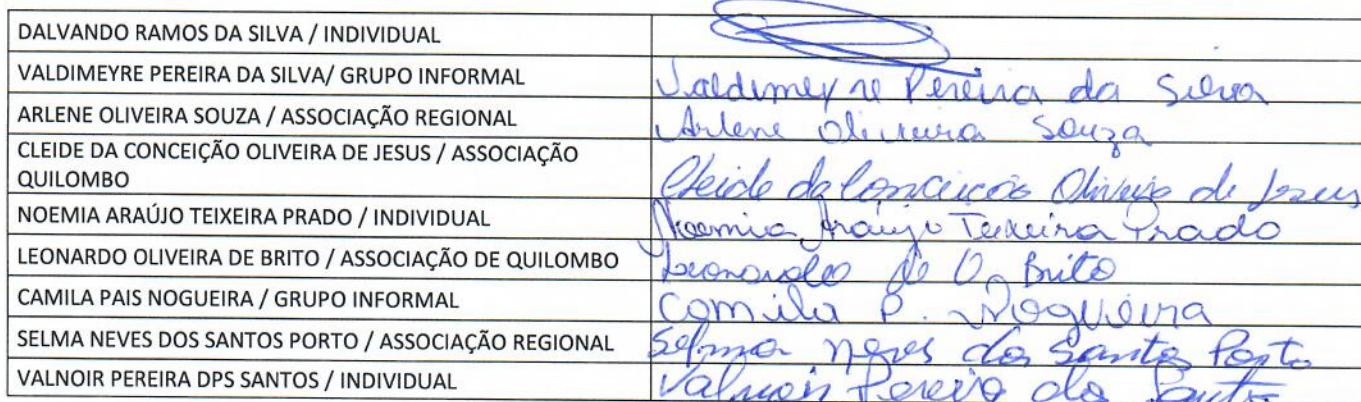 DALVANDO RAMOS DA SILVA / INDIVIDUAL
VALDIMEYRE PEREIRA DA SILVA/ GRUPO INFORMAL Valdimeyre Pereira da Silva
ARLENE OLIVEIRA SOUZA / ASSOCIAÇÃO REGIONAL Arlene Oliveira Souza
CLEIDE DA CONCEIÇÃO OLIVEIRA DE JESUS / ASSOCIAÇÃO
QUILOMBO Cleide da Conceição Oliveira de Jesus
NOEMIA ARAÚJO TEIXEIRA PRADO / INDIVIDUAL Noemia Araújo Teixeira Prado
LEONARDO OLIVEIRA DE BRITO / ASSOCIAÇÃO DE QUILOMBO Leonardo de O. Brito
CAMILA PAIS NOGUEIRA / GRUPO INFORMAL Camila P. Nogueira
SELMA NEVES DOS SANTOS PORTO / ASSOCIAÇÃO REGIONAL Selma Neves dos Santos Porto
VALNOIR PEREIRA DPS SANTOS / INDIVIDUAL Valnoir Pereira dos Santos